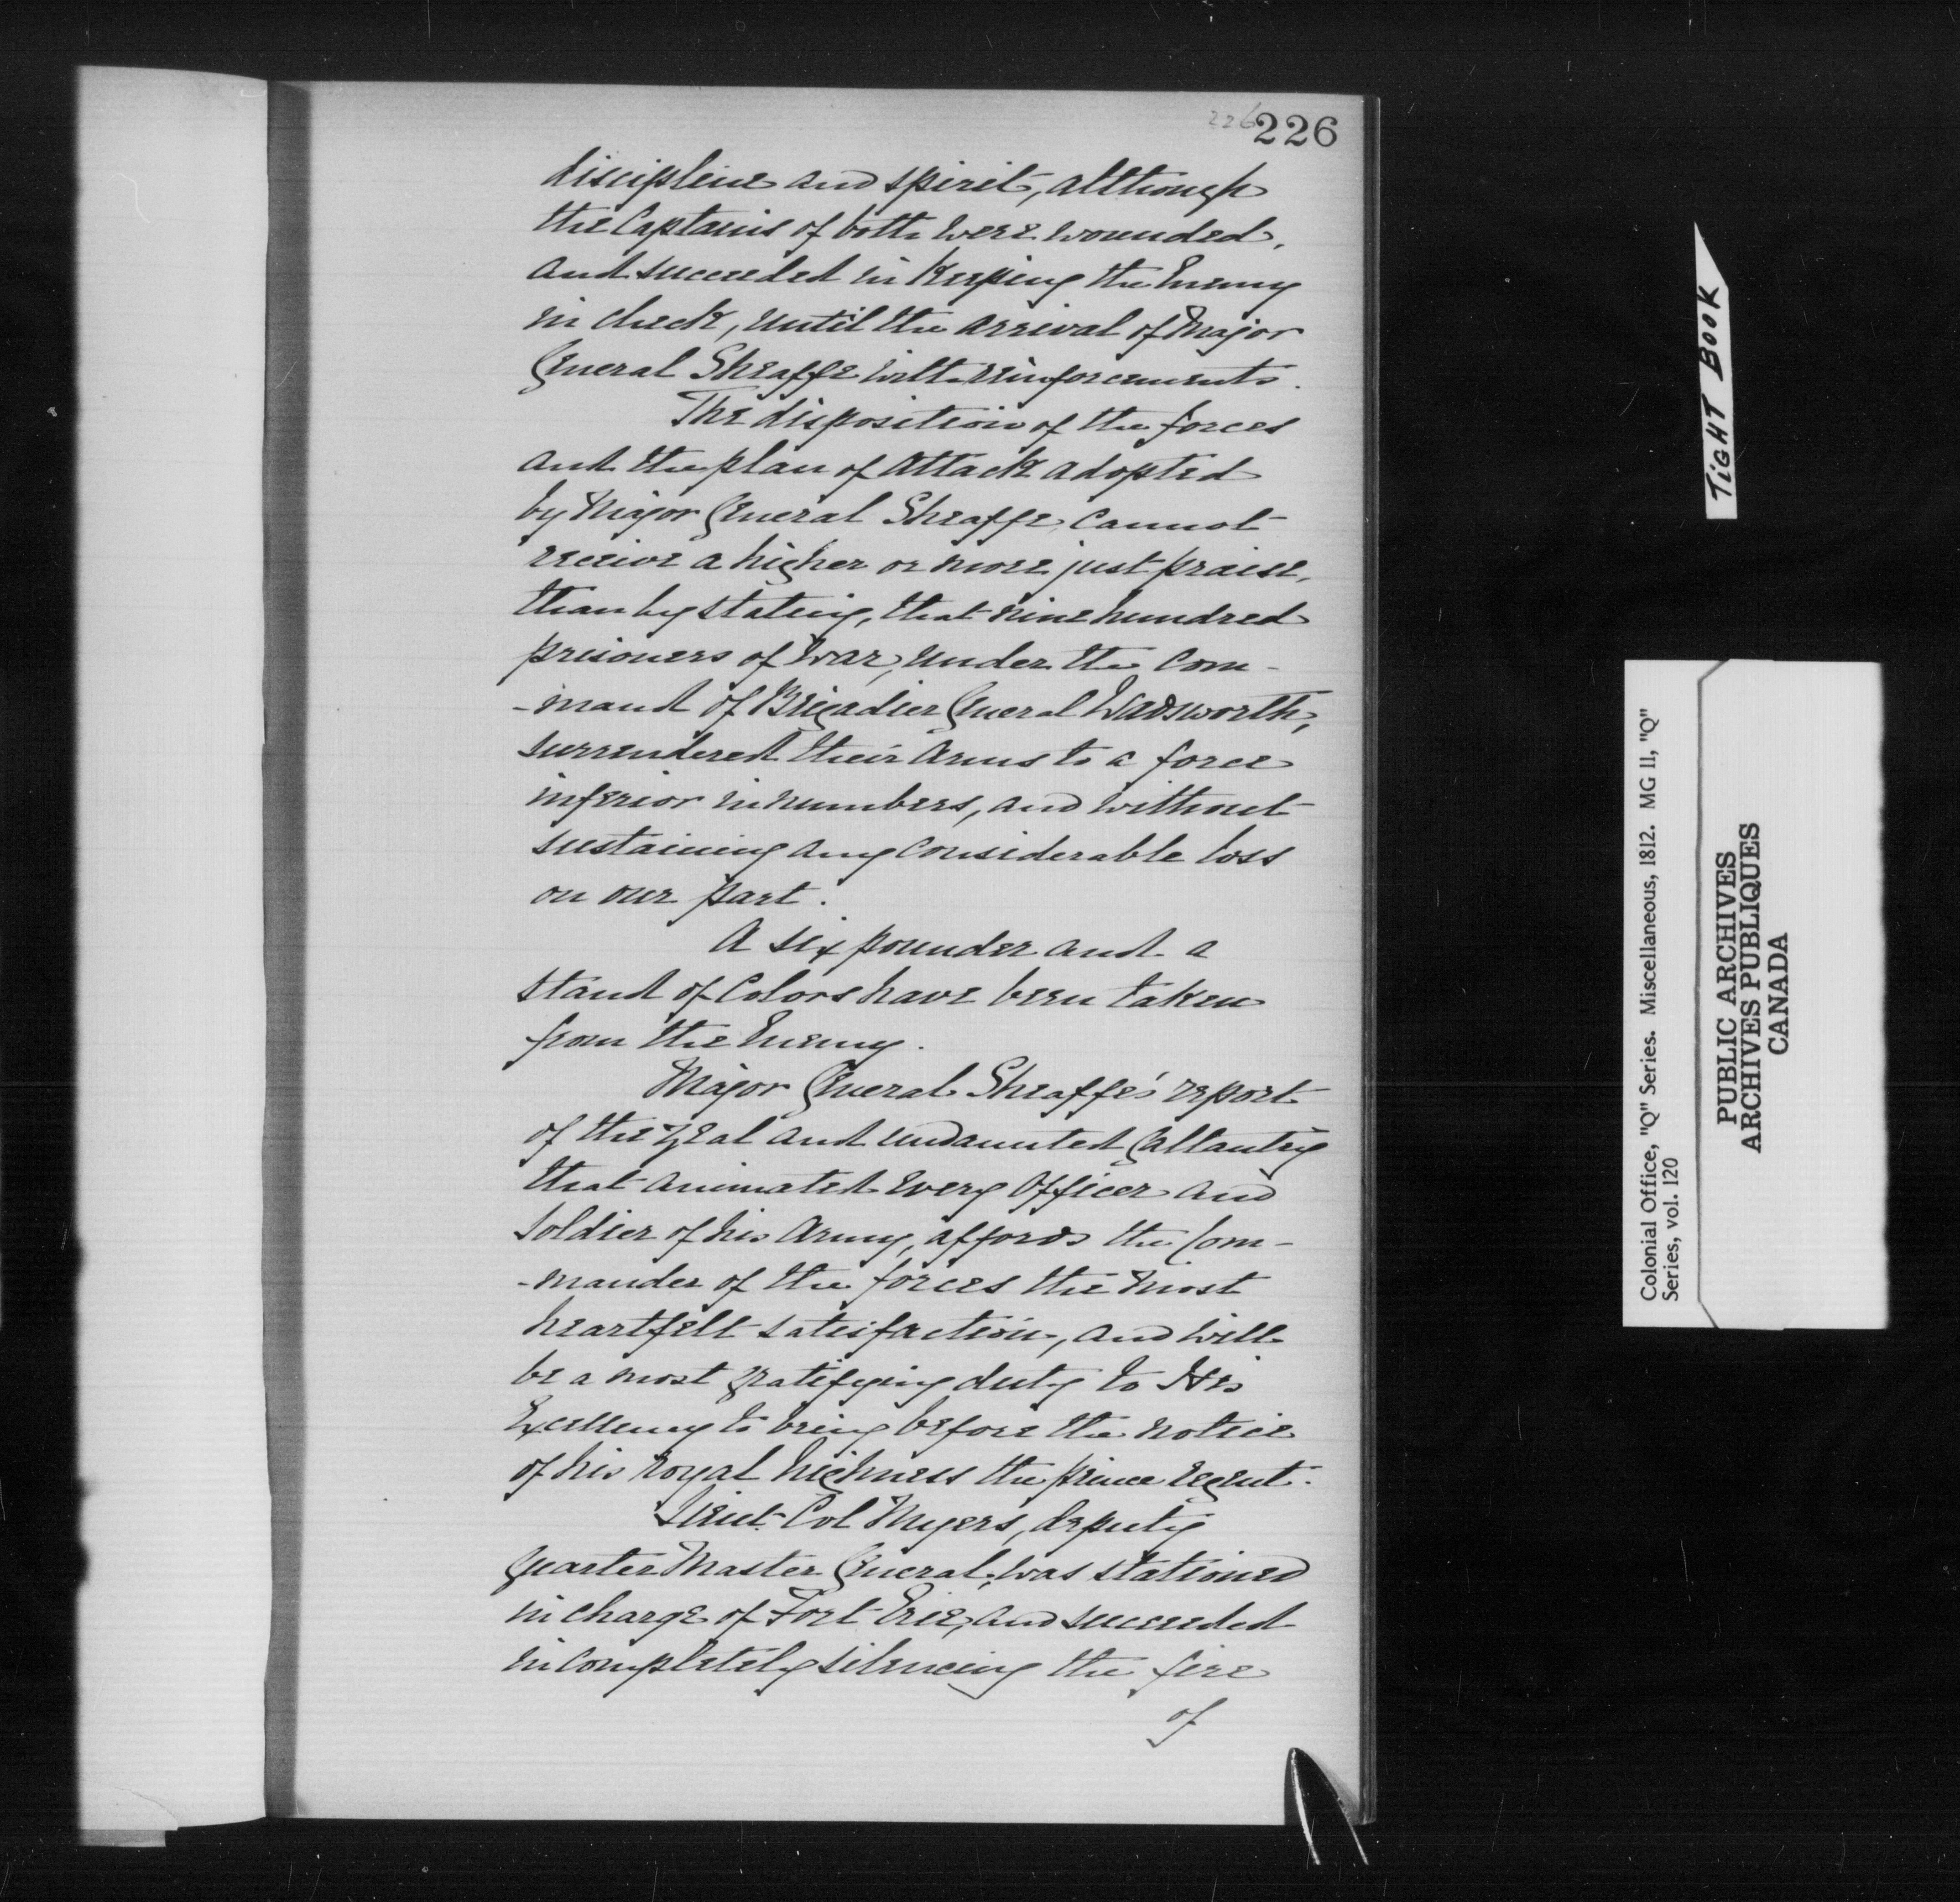 226 226
discipline and spirit, although
the Captains of both were wounded,
and succeeded in keeping the Enemy
in check, until the arrival of Major
General Sheaffe with reinforcements.
The disposition of the forces
and the plan of attack adopted
by Major General Sheaffe, cannot
receive a higher or more just praise,
than by stating, that nine hundred
prisoners of war, under the com-
-mand of Brigadier General Wadsworth,
surrendered their arms to a force
inferior in numbers, and without
sustaining any considerable loss
on our part.
A six pounder and a
stand of Colors have been taken
from the Enemy.
Major General Sheaffe's report
of the zeal and undaunted Gallantry
that animated every Officer and
Soldier of his Army, affords the Com-
-mander of the forces the most
heartfelt satisfaction, and will
be a most gratifying duty to His
Excellency to bring before the notice
of his royal highness the prince regent.
Lieut. Col Myers, deputy
Quarter Master General, was stationed
in charge of Fort Erie, and succeeded
in completely silencing the fire
of
TIGHT BOOK
Colonial Office, "Q" Series. Miscellaneous, 1812. MG 11, "Q"
Series, vol. 120
PUBLIC ARCHIVES
ARCHIVES PUBLIQUES
CANADA